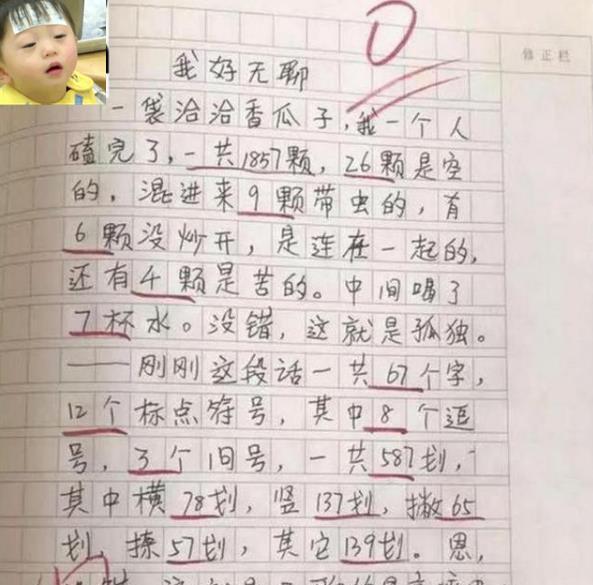 0
修正栏
我好无聊
一袋洽洽香瓜子，我一个人
磕完了，一共1857颗，26颗是空
的，混进来9颗带虫的，有
6颗没炒开，是连在一起的，
还有4颗是苦的。中间喝了
7杯水。没错，这就是孤独。
——刚刚这段话一共67个字，
12个标点符号，其中8个逗
号，3个旧号，一共587划，
其中横78划，竖137划，撇65
划，捺57划，其它139划。恩，